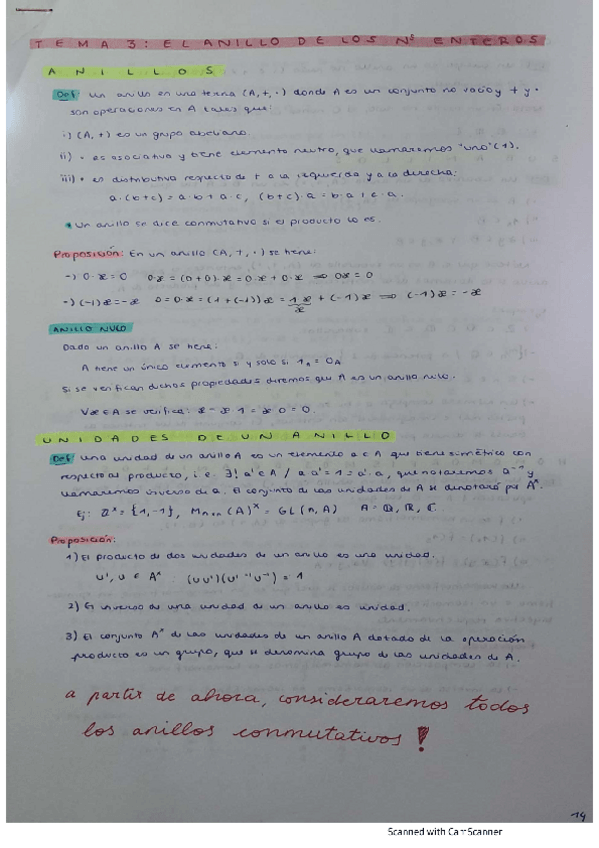 TEMA 3: EL ANILLO DE LOS Nº ENTEROS
ANILLOS
Def un anillo en una terna (A, +, ·) donde A es un conjunto no vacío y + y ·
son operaciones en A tales que:
i) (A, +) es un grupo abeliano.
ii) · es asociativa y tiene elemento neutro, que llamaremos "uno" (1).
iii) · es distributiva respecto de + a la izquierda y a la derecha:
a·(b+c) = a·b + a·c, (b+c)·a = b·a + c·a.
* Un anillo se dice conmutativo si el producto lo es.
Proposición: En un anillo (A, +, ·) se tiene:
-) 0·x = 0 0·x = (0+0)·x = 0·x + 0·x ⟹ 0x = 0
-) (-1)x = -x 0 = 0·x = (1+(-1))x = 1·x + (-1)x ⟹ (-1)x = -x
x
ANILLO NULO
Dado un anillo A se tiene:
A tiene un único elemento si y solo si 1_A = 0_A
Si se verifican dichas propiedades diremos que A es un anillo nulo.
∀x ∈ A se verifica: x = x·1 = x·0 = 0.
UNIDADES DE UN ANILLO
Def una unidad de un anillo A es un elemento a ∈ A que tiene simétrico con
respecto al producto, i.e. ∃! a' ∈ A / a a' = 1 = a'·a, que notaremos a⁻¹ y
llamaremos inverso de a. El conjunto de las unidades de A se denotará por Aˣ.
Ej: ℤˣ = {1, -1}, Mₙₓₙ(A)ˣ = GL(n, A) A = ℚ, ℝ, ℂ.
Proposición:
1) El producto de dos unidades de un anillo es una unidad.
u', u ∈ Aˣ : (u u')(u'⁻¹u⁻¹) = 1
2) El inverso de una unidad de un anillo es unidad.
3) El conjunto Aˣ de las unidades de un anillo A dotado de la operación
producto es un grupo, que se denomina grupo de las unidades de A.
a partir de ahora, consideraremos todos
los anillos conmutativos!
19
Scanned with CamScanner